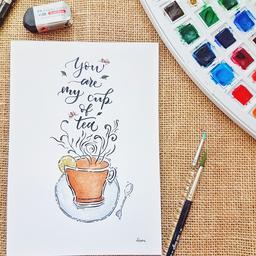 You
are
my cup
of
tea